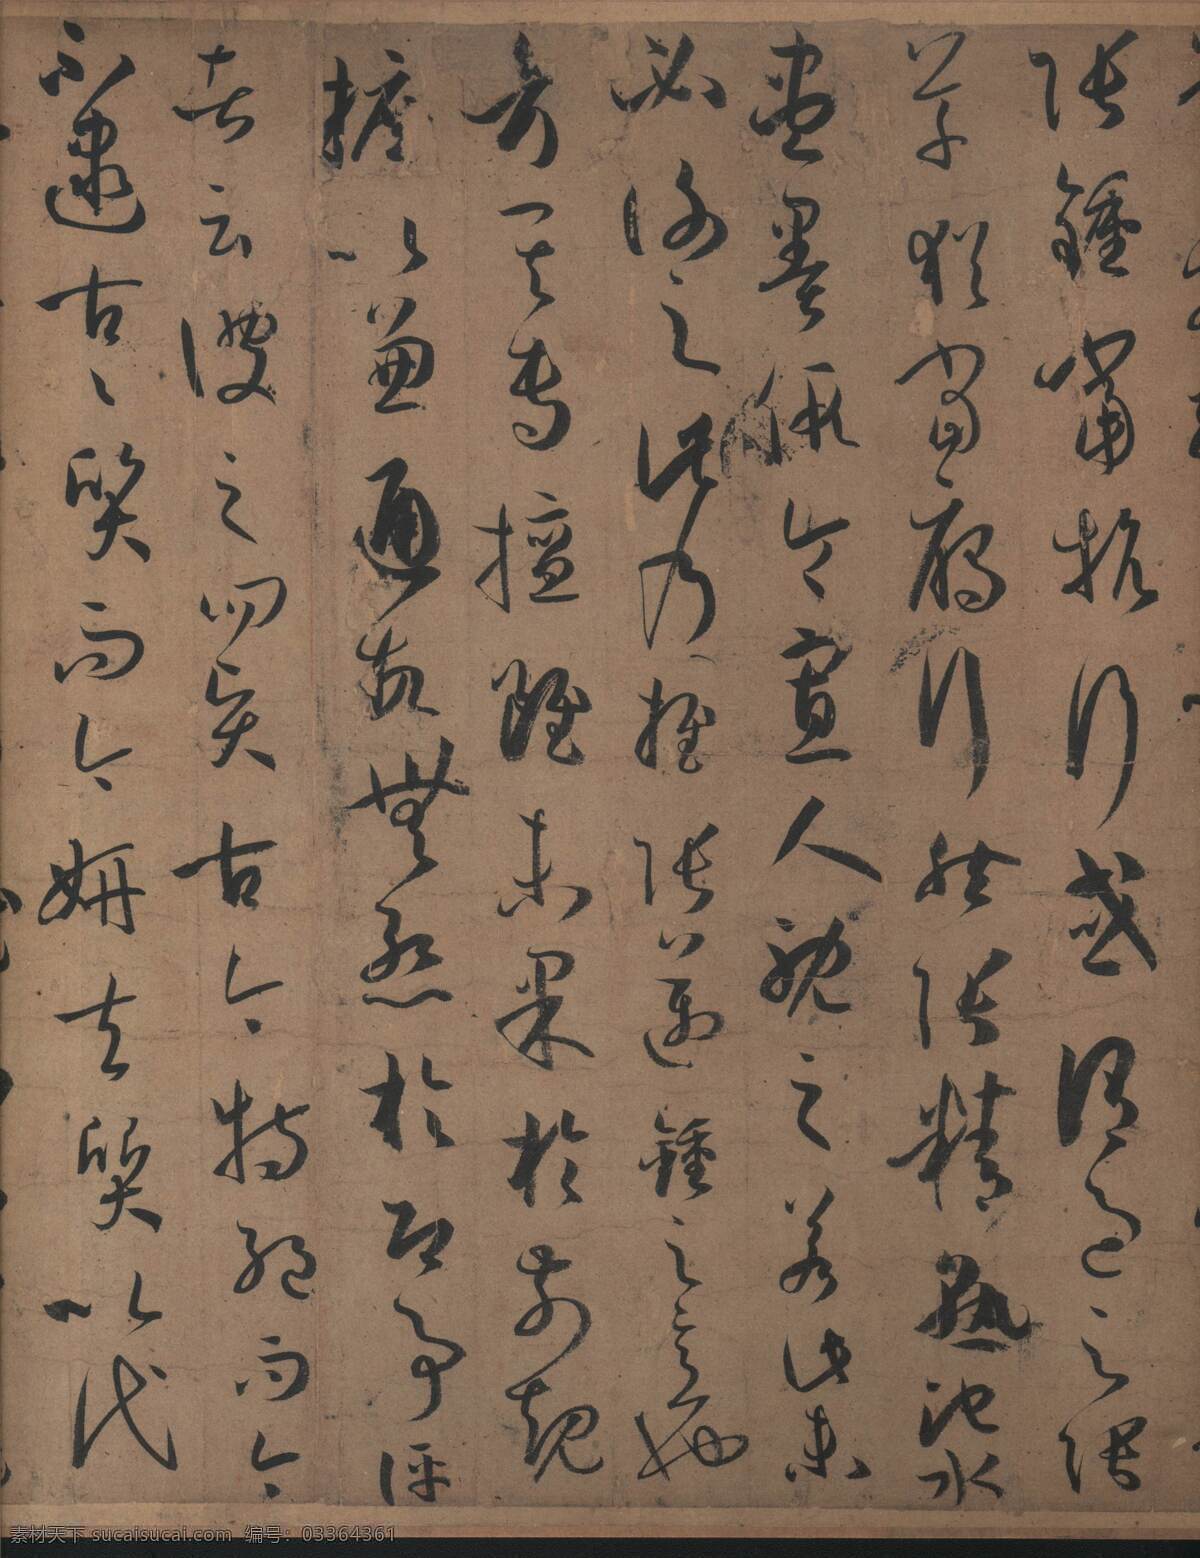 張鍾當抗行或謂過之張
草猶當鴈行然張精熟池水
盡墨假令寡人耽之若此未
必謝之此乃推張邁鍾之意也
考其專擅雖未果於前規
摭以兼通故無慙於即事評
者云彼之四賢古今特絕而今
不逮古〻質而今妍夫質以代
素材天下 sucaisucai.com 编号：03364361